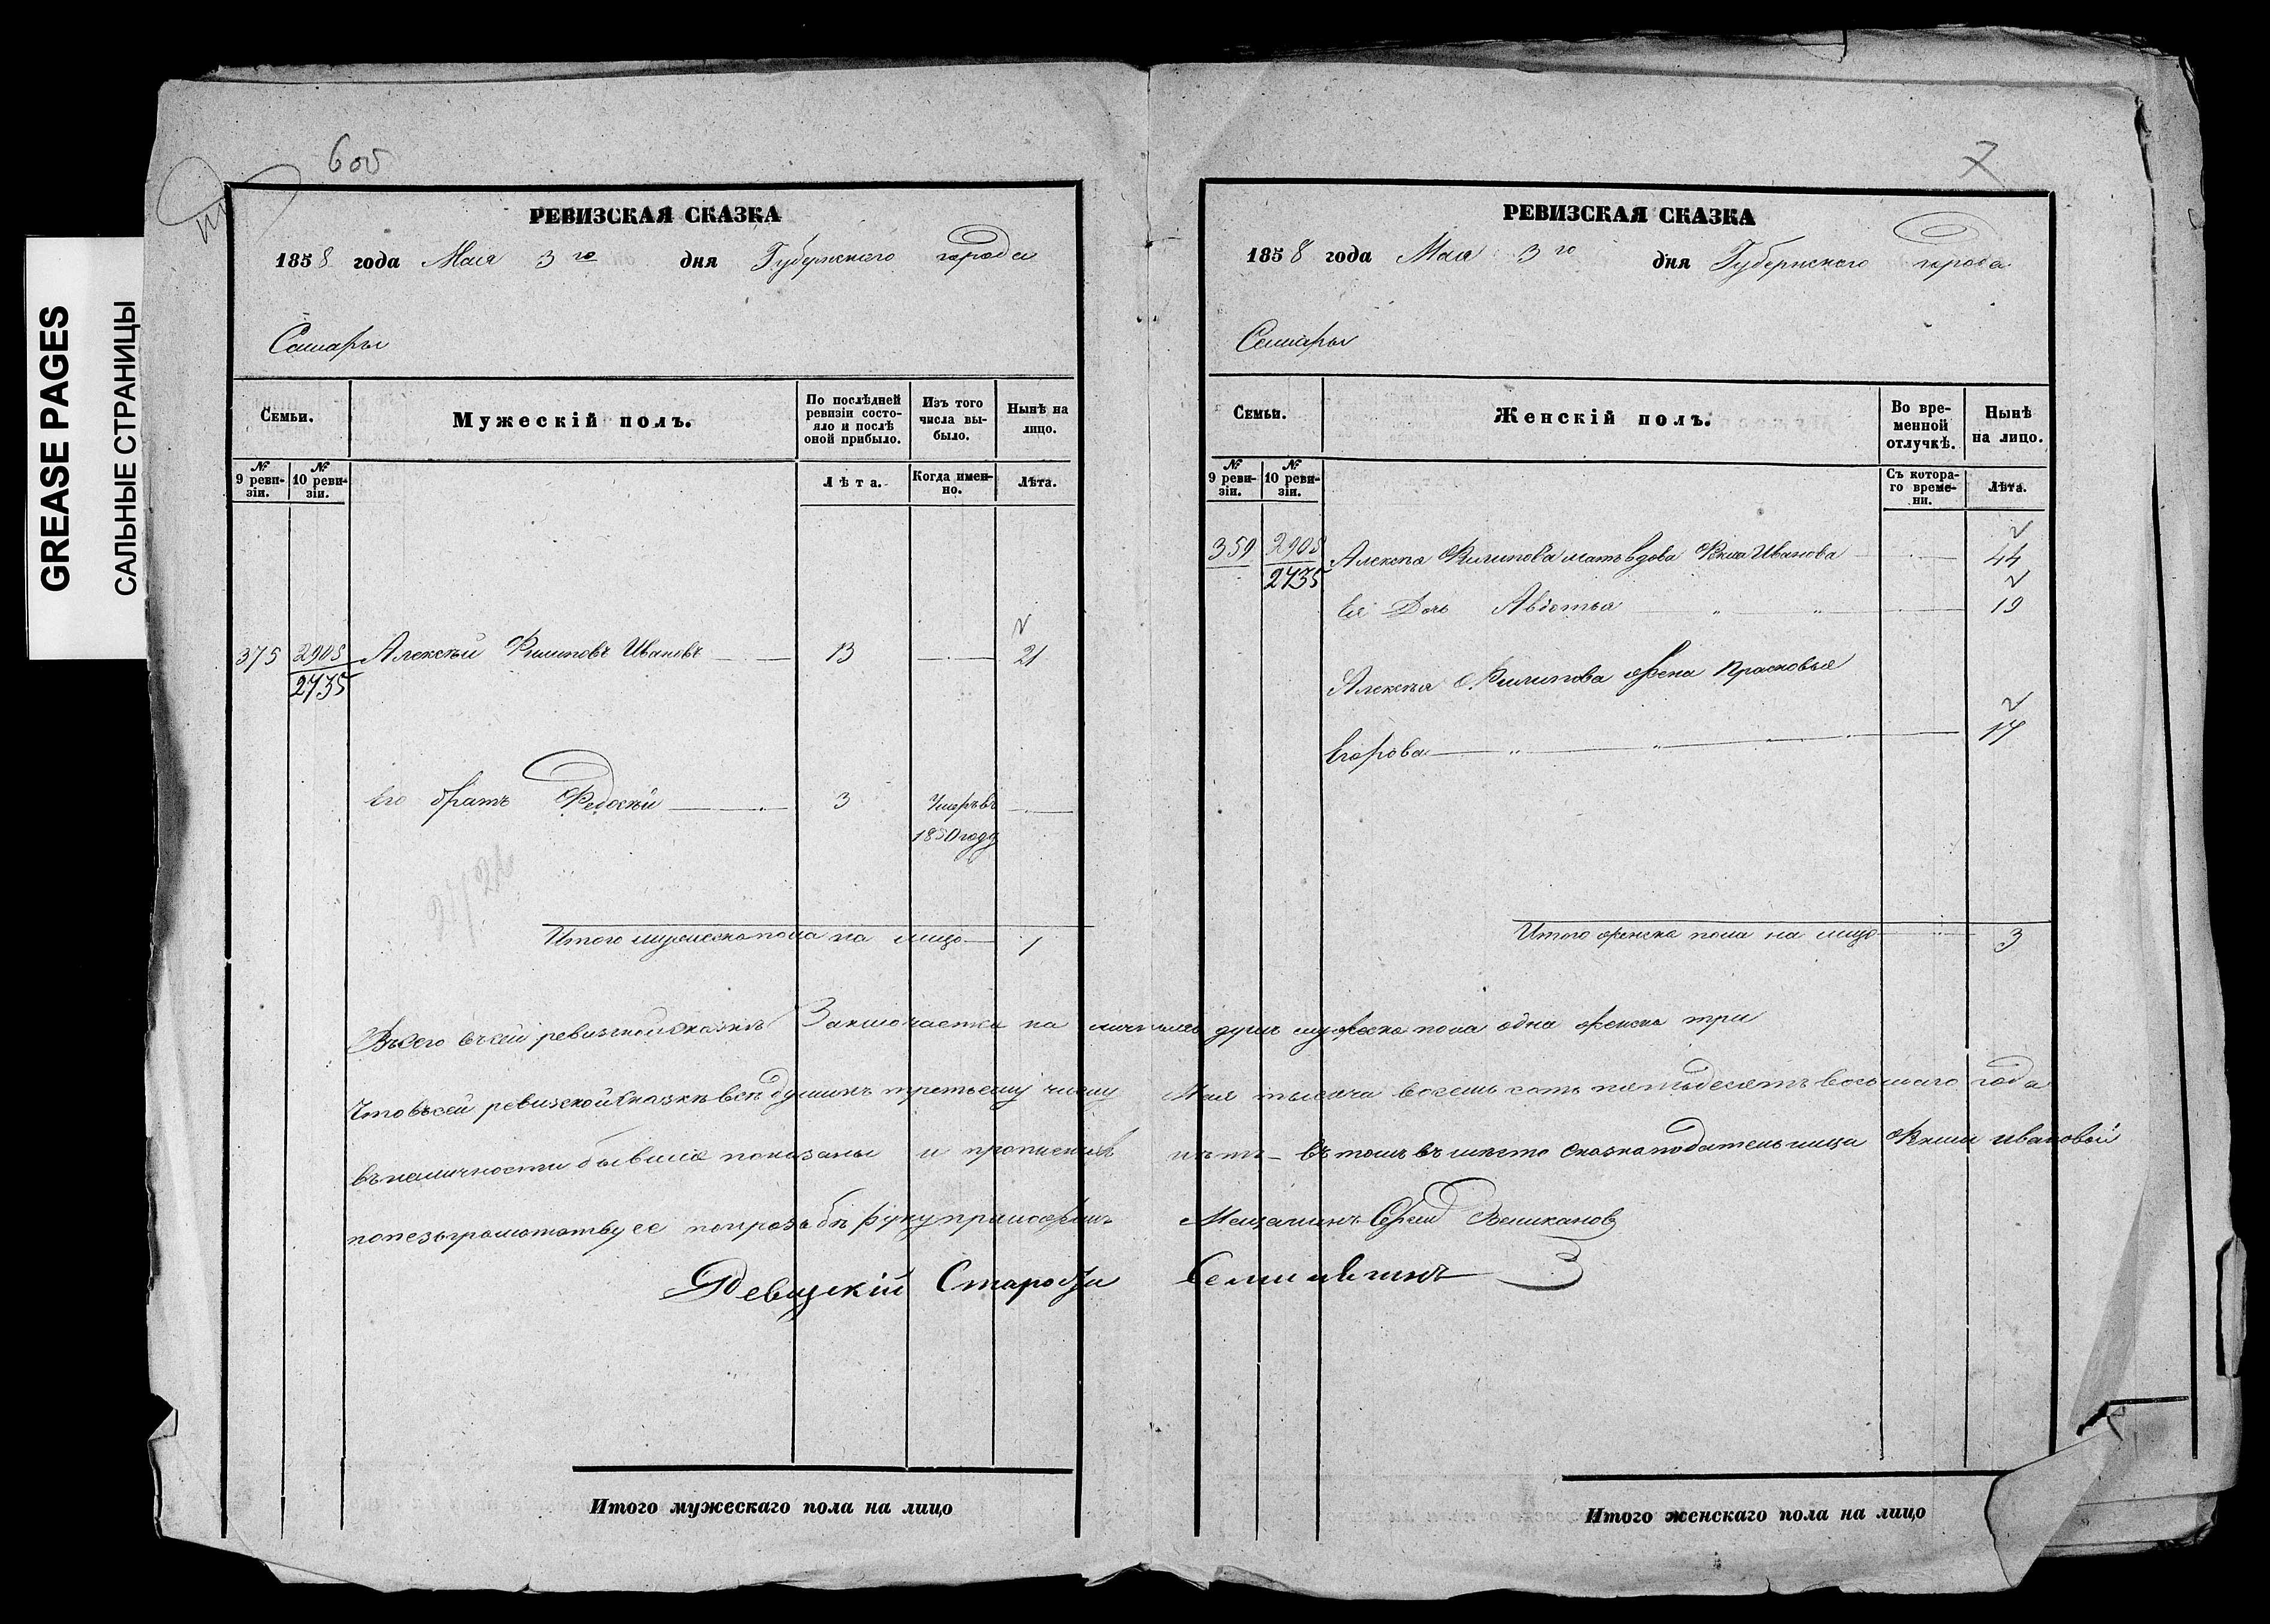 GREASE PAGES
САЛЬНЫЕ СТРАНИЦЫ
600
РЕВИЗСКАЯ СКАЗКА
1858 года Мая 3го дня Губернскаго города
Самары
Семьи.
Мужескій полъ.
По послѣдней ревизіи состояло и послѣ оной прибыло.
Изъ того числа выбыло.
Нынѣ на лицо.
№ 9 ревизіи.
№ 10 ревизіи.
Лѣта.
Когда именно.
Лѣта.
375 2905 Алексѣй Филиповъ Ивановъ 13 21
2735
Его братъ Федосѣй 3 Умеръ въ
1850 году
Итого мужеска пола на лицо 1
7
РЕВИЗСКАЯ СКАЗКА
1858 года Мая 3го дня Губернскаго города
Самары
Семьи.
Женскій полъ.
Во временной отлучкѣ.
Нынѣ на лицо.
№ 9 ревизіи.
№ 10 ревизіи.
Съ котораго времени.
Лѣта.
359 2905 Алексѣя Филипова мать вдова Иванова 44
2735
Ея Дочь Авдотья 19
Алексѣя Филипова жена Прасковья
Егорова 17
Итого женска пола на лицо 3
Всего въ сей ревизской сказкѣ Заключается на душъ мужеска пола одна женска три
Что въ сей ревизской сказкѣ всѣ души къ третьему числу Мая тысяча восемь сотъ пятьдесятъ восьмаго года
въ наличности бывшіе показаны и нѣтъ въ томъ въ мѣсто сказкоподательница Ивановой
по безграмотству ее по прозьбѣ руку приложилъ Мещанинъ Сергѣй Великановъ
Староста
Итого мужескаго пола на лицо
Итого женскаго пола на лицо